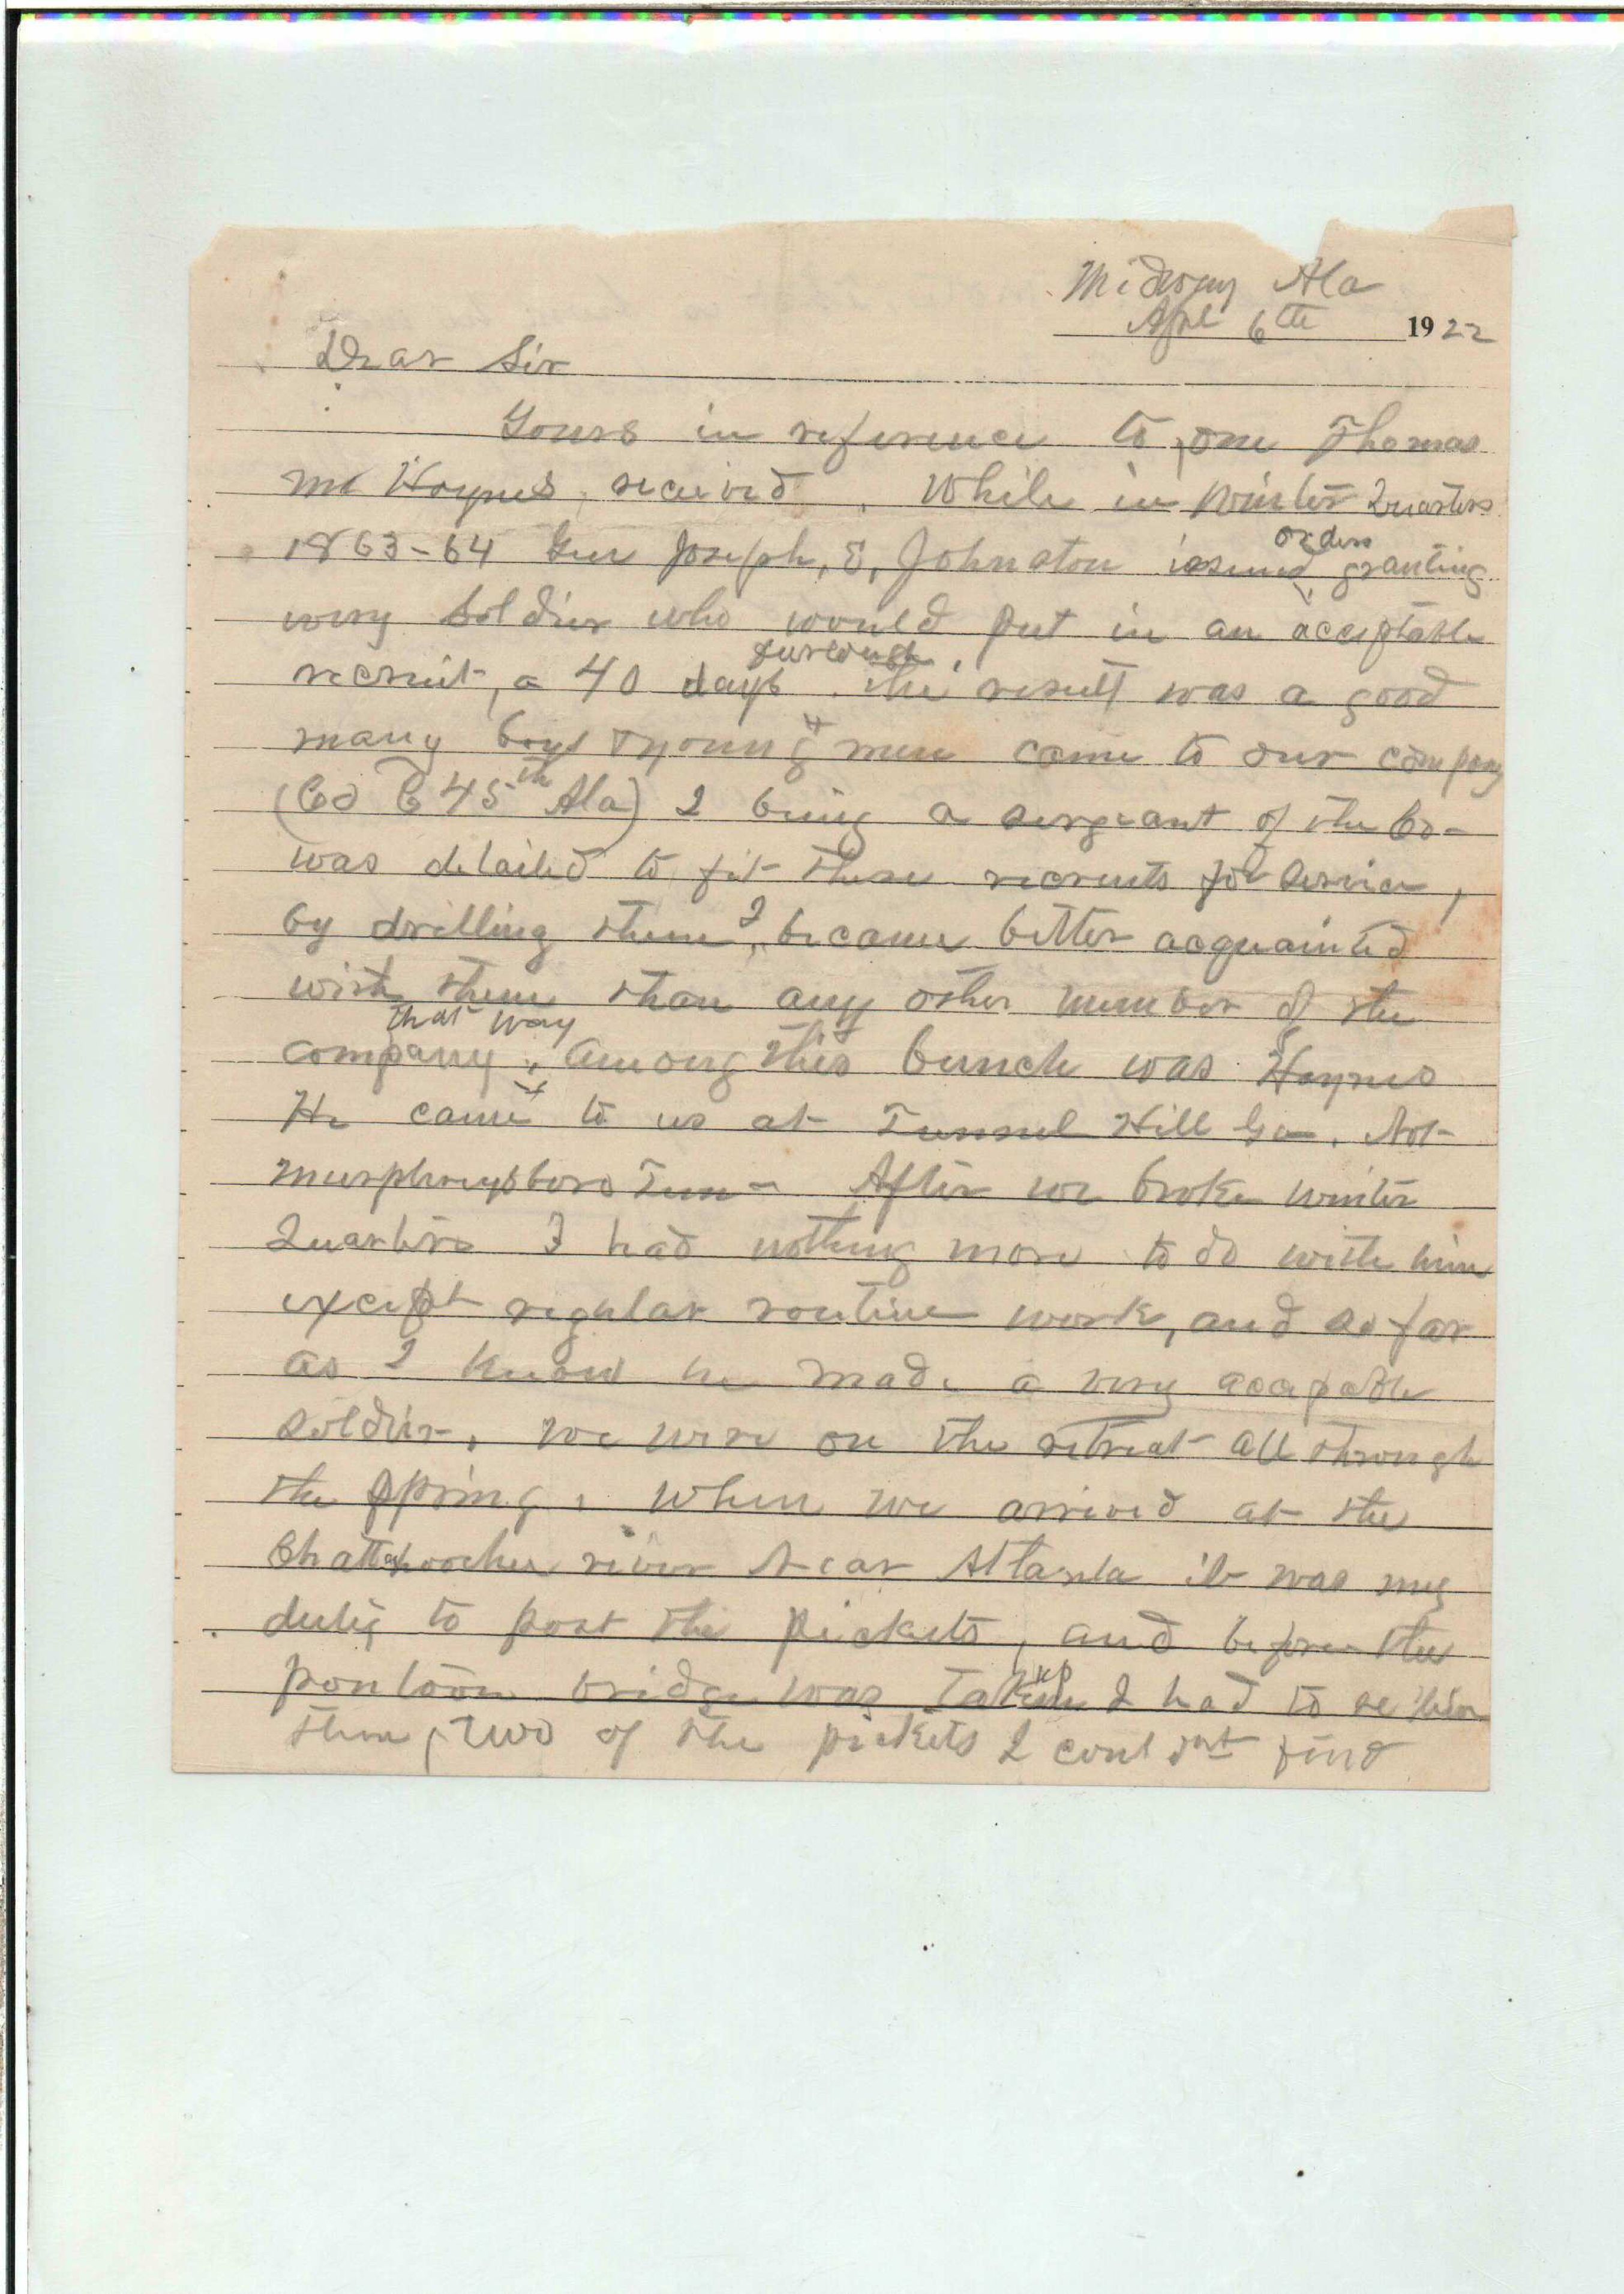 Midway Ala
Apl 6th 1922
Dear Sir
Yours in reference to one Thomas
Mc Haynes received. While in Winter Quarters
orders
1863-64 Gen Joseph, E, Johnston issued granting
every soldier who would put in an acceptable
furlough
recruit, a 40 days. the result was a good
many boys & young men came to our company
(Co E 45th Ala) I being a sergeant of the Co-
was detailed to fit these recruits for service,
by drilling them I became better acquainted
with them than any other member of the
that way
company. Among this bunch was Haynes
He came to us at Tunnel Hill Ga. Not
Murphreysboro Tenn - After we broke winter
Quarters I had nothing more to do with him
except regular routine work, and so far
as I know he made a very acceptable
soldier. We were on the retreat all through
the spring. When we arrived at the
Chattahoochee river Near Atlanta it was my
duty to post the pickets, and before the
up
pontoon bridge was taken I had to relieve
them, two of the pickets I couldnt find